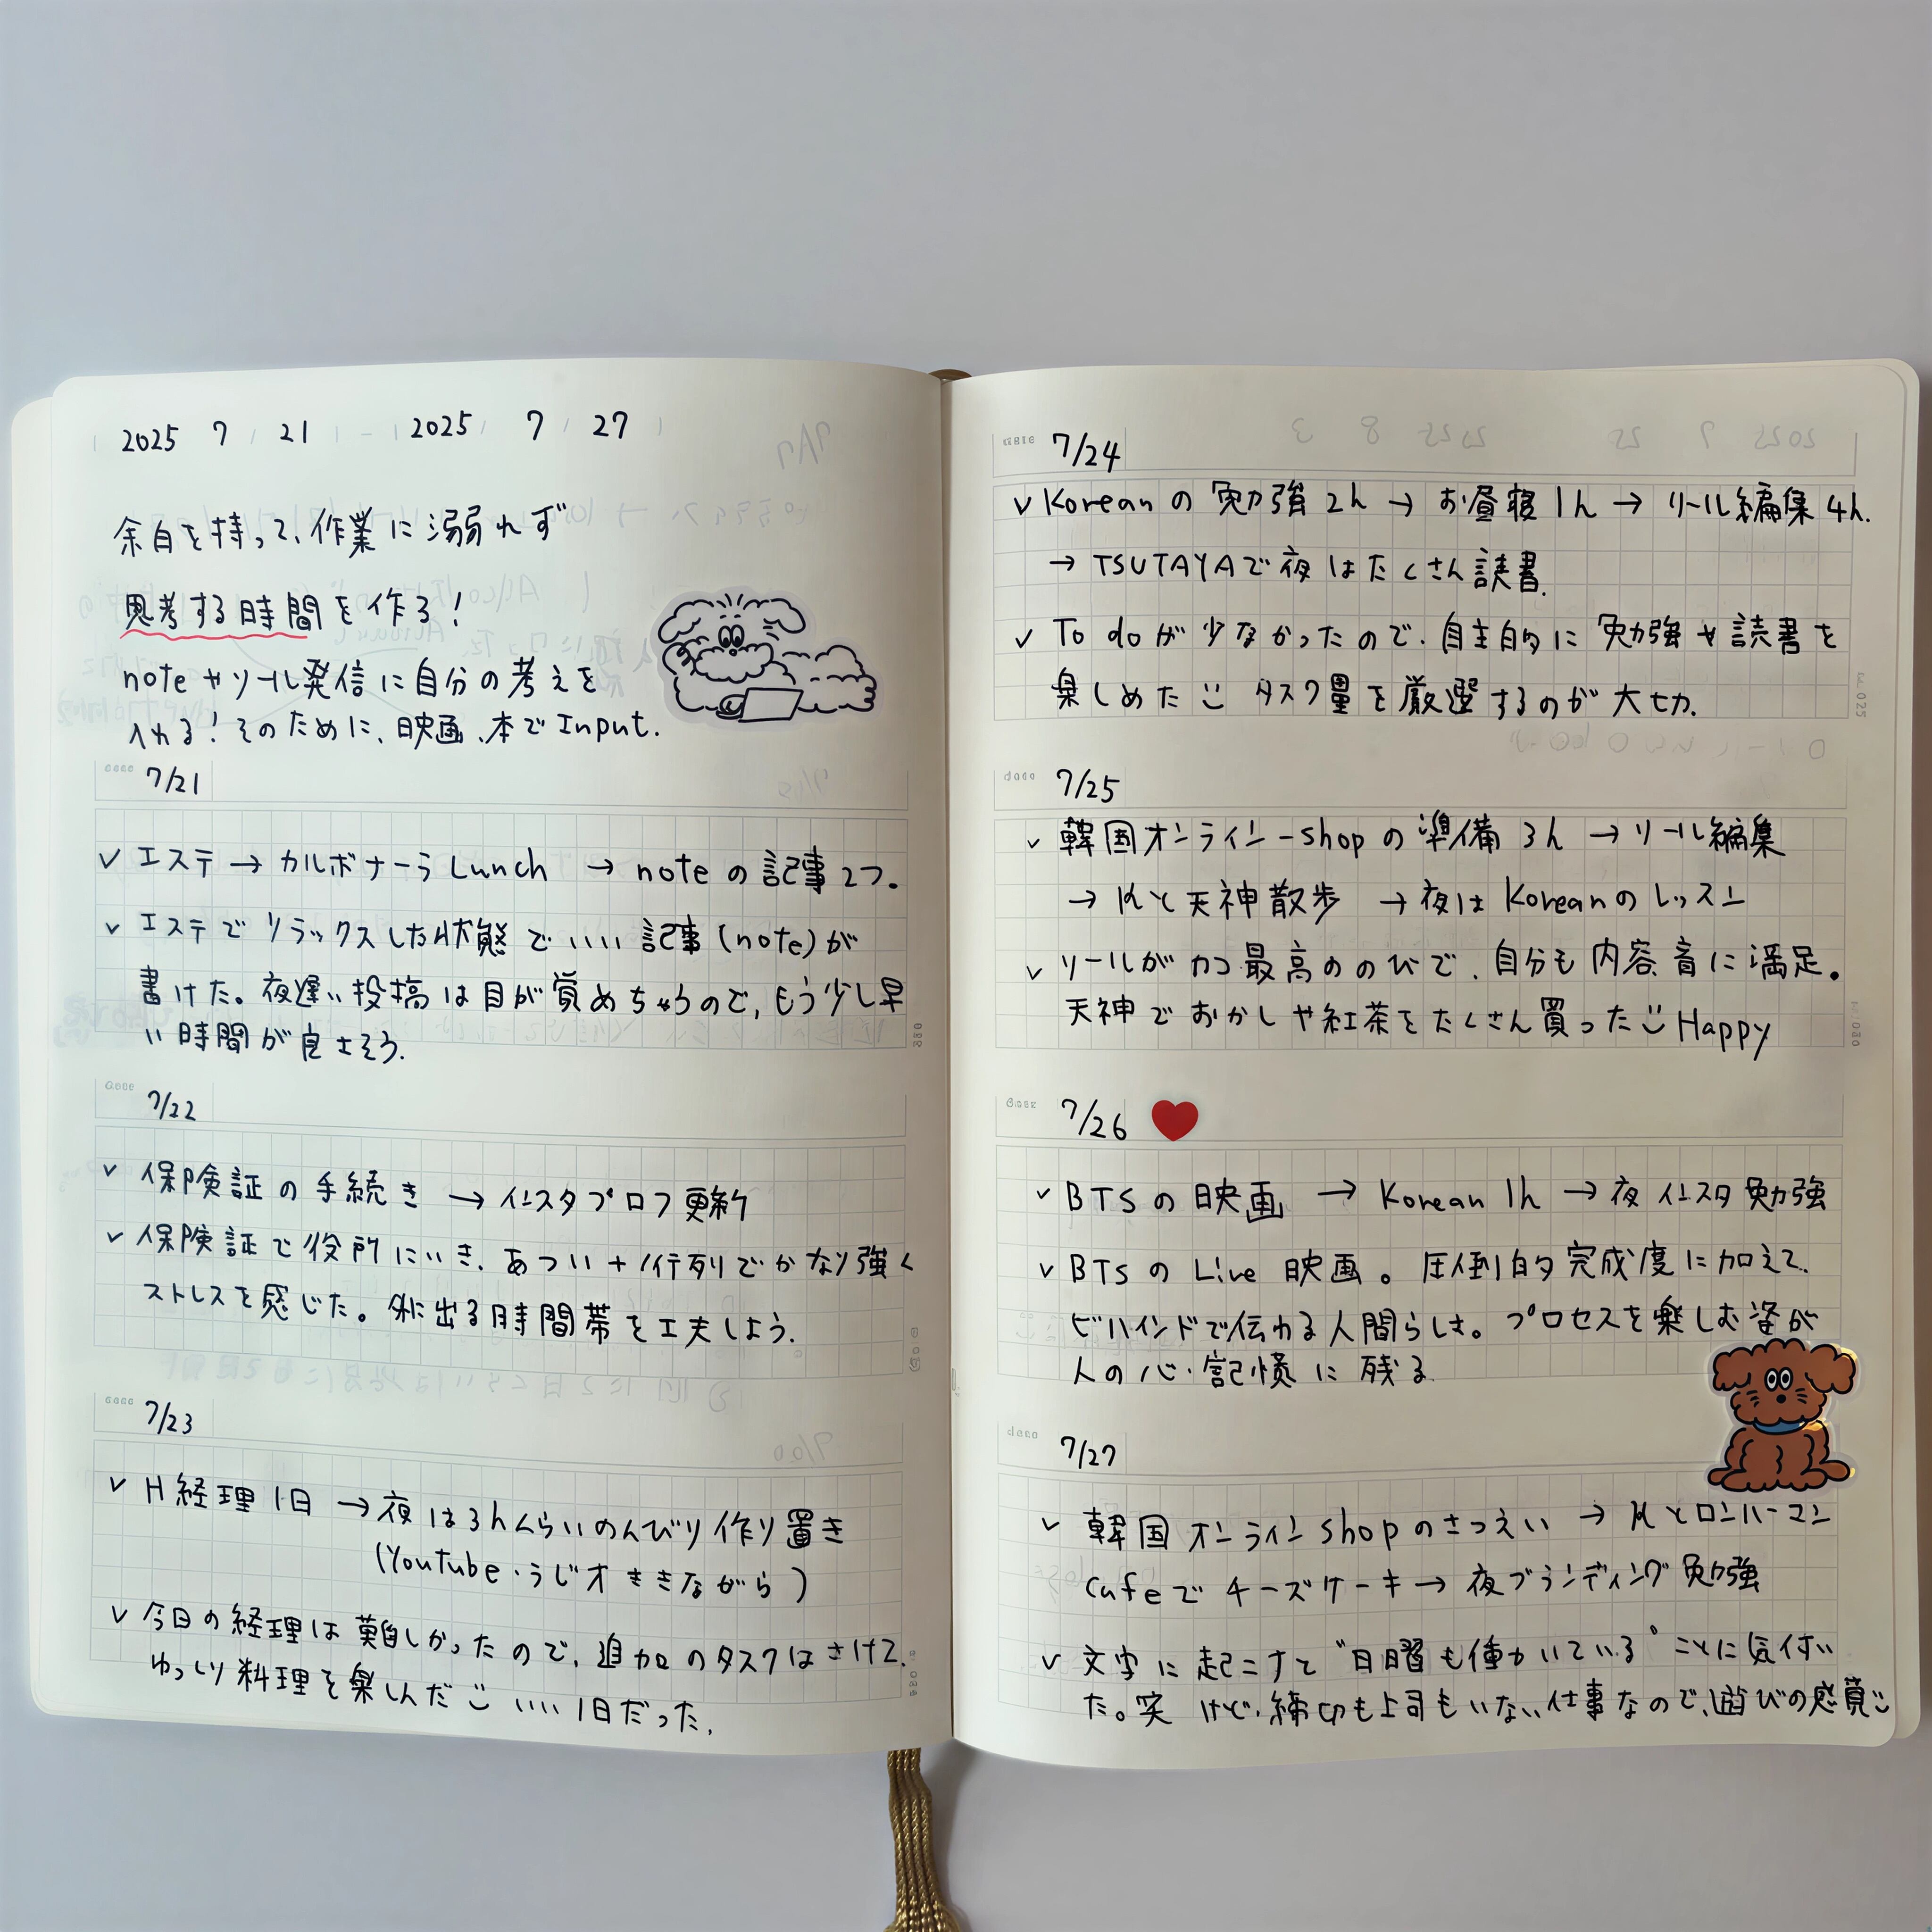 2025 7 21 - 2025 7 27
余白を持って、作業に溺れず
思考する時間を作る!
noteやリール発信に自分の考えを
入れる!そのために、映画、本でInput.
7/21
✓ エステ → カルボナーラ Lunch → note の記事2つ。
✓ エステでリラックスした状態でいい記事(note)が
書けた。夜遅い投稿は目が覚めちゃうので、もう少し早
い時間が良さそう.
7/22
✓ 保険証の手続き → インスタプロフ更新
✓ 保険証で役所にいき、あつい+行列でかなり強く
ストレスを感じた。外に出る時間帯を工夫しよう.
7/23
✓ H経理1日 → 夜は3hくらいのんびり作り置き
(Youtube・ラジオききながら)
✓ 今日の経理は難しかったので、追加のタスクはさけて、
ゆっくり料理を楽しんだ いい1日だった.
7/24
✓ Koreanの勉強2h → お昼寝1h → リール編集4h.
→ TSUTAYAで夜はたくさん読書.
✓ To doが少なかったので、自主的に勉強や読書を
楽しめた タスク量を厳選するのが大切.
date 7/25
✓ 韓国オンラインーshopの準備3h → リール編集
→ Kと天神散歩 → 夜はKoreanのレッスン
✓ リールが 最高ののびで、自分も内容 に満足。
天神でおかしや紅茶をたくさん買った Happy
7/26
✓ BTSの映画 → Korean 1h → 夜インスタ勉強
✓ BTSのLive映画。圧倒的完成度に加えて、
ビハインドで伝わる人間らしさ。プロセスを楽しむ姿が
人の心・記憶に残る
date 7/27
✓ 韓国オンラインshopのさつえい → Kとロンハーマン
cafeでチーズケーキ → 夜ブランディング勉強
✓ 文字に起こすと"日曜も働いている"ことに気付い
た。笑 けど、締切も上司もいない仕事なので、遊びの感覚